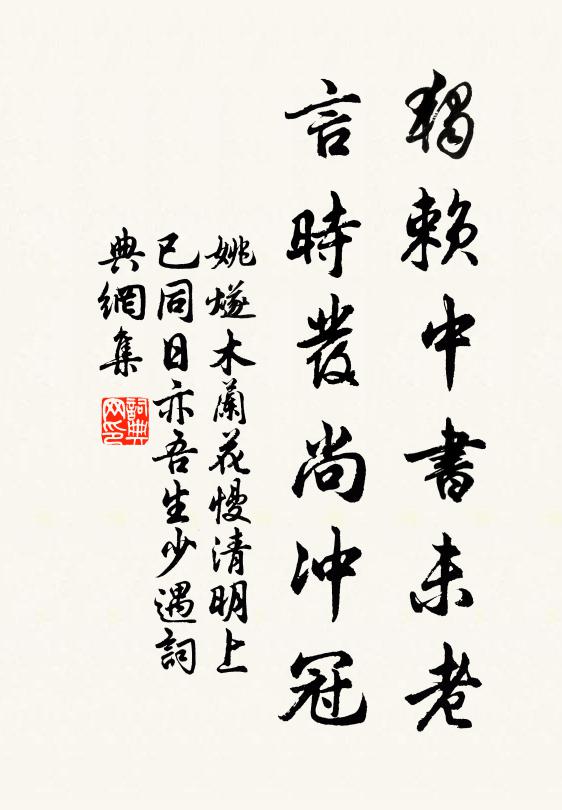 獨賴中書未老
言時髮尚冲冠
姚燧木蘭花慢清明上
已同日亦吾生少遇詞
典網集
詞典
网印